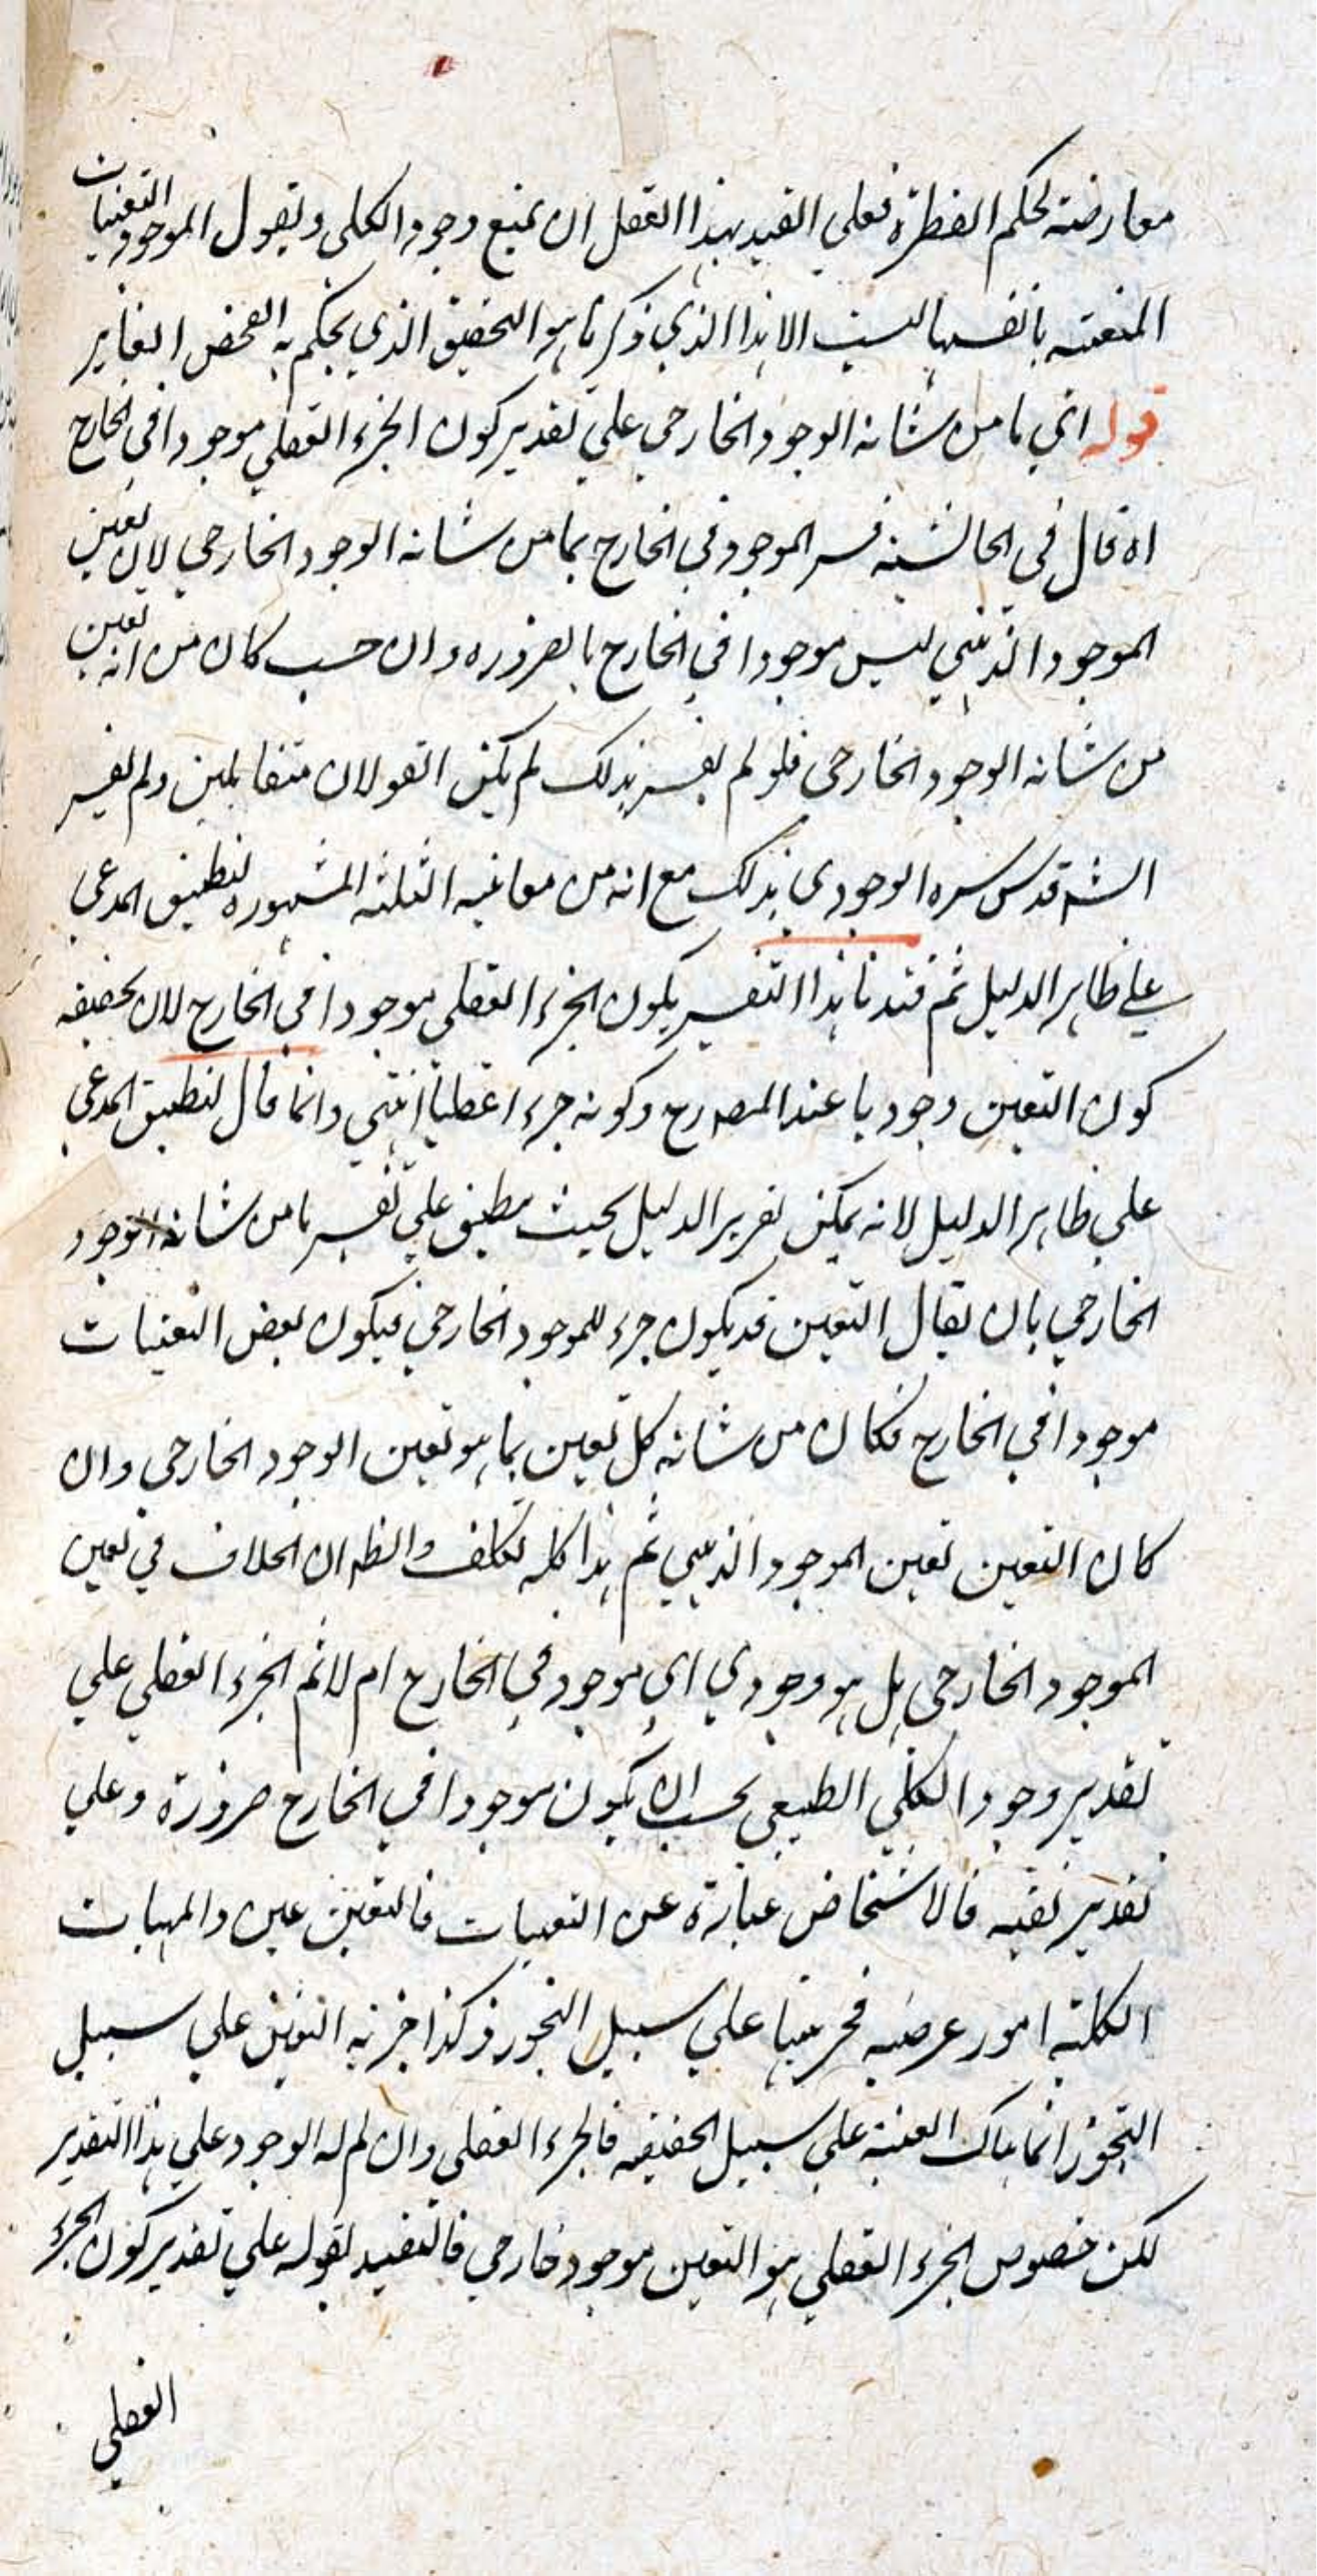 معارضته لحكم الفطرة فعلي القيد بهذا العقل ان يمنع وجود الكلي ويقول الموجود التعينات
المتعينة بانفسها ليست الا هذا الذي ذكرنا هو التحقيق الذي يحكم به الفحص الغاير
قوله اي ما من شانه الوجود الخارجي علي تقدير كون الجزء العقلي موجودا في الخارج
اه قال في الحاشية فسر الموجود في الخارج بما من شانه الوجود الخارجي لان تعين
الموجود الذهني ليس موجودا في الخارج بالضروره وان حسب كان من انه تعين
من شانه الوجود الخارجي فلو لم يفسر بذلك لم يكن القولان متقابلين ولم يفسر
الشه قدس سره الوجودي بذلك مع انه من معانيه الثلثه المشهوره لتطبيق المدعي
علي ظاهر الدليل ثم قيدنا هذا التفسير بكون الجزء العقلي موجودا في الخارج لان تحقيقه
كون التعين وجوديا عند المصه رح وكونه جزء اعقليا انتهي وانما قال لتطبيق المدعي
علي ظاهر الدليل لانه يمكن تقرير الدليل بحيث ينطبق علي تفسير ما من شانه الوجود
الخارجي بان يقال التعين قد يكون جزء للموجود الخارجي فيكون بعض التعينات
موجودا في الخارج فكان من شانه كل تعين بما هو تعين الوجود الخارجي وان
كان التعين تعين الموجود الذهني ثم هذا كله تكلف والظه ان الخلاف في تعين
الموجود الخارجي هل هو وجودي اي موجود في الخارج ام لا ثم الجزء العقلي علي
تقدير وجود الكلي الطبيعي يجب ان يكون موجودا في الخارج ضرورة وعلي
تقدير نفيه فالاشخاص عبارة عن التعينات فالتعين عين والمهيات
الكلية امور عرضيه فجزئيتها علي سبيل التجوز وكذا جزئيه التعين علي سبيل
التجوز انما هناك العينية علي سبيل الحقيقه فالجزء العقلي وان لم له الوجود علي هذا التقدير
لكن خصوص الجزء العقلي هو التعين موجود خارجي فالتقييد بقوله علي تقدير كون الجزء
العقلي